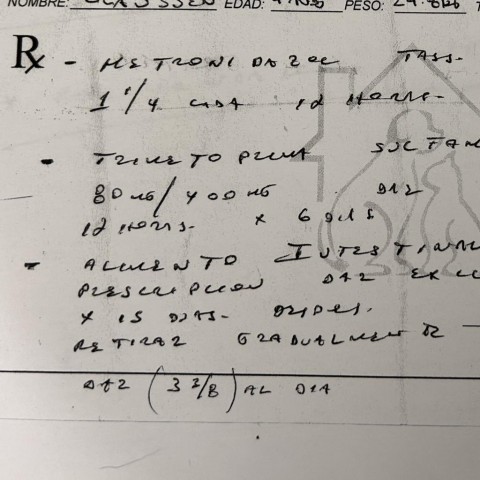 NOMBRE: CLAUSSEN EDAD: PESO: 29.8
Rx - METRONIDAZOL TABS.
1 1/4 CADA 12 HORAS.
- TRIMETOPRIMA SULFAM
80 MG/400 MG DAR
12 HORAS. x 6 DIAS
- ALIMENTO INTESTINAL
PRESCRIPCION DAR EXCL
x 15 DIAS. DESPUES.
RETIRAR GRADUALMENTE
DAR (3 3/8) AL DIA